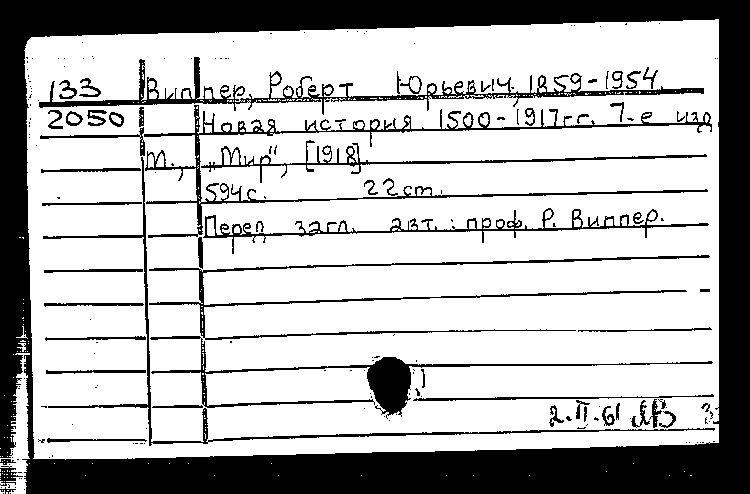 133 Виппер, Роберт Юрьевич, 1859-1954.
2050 Новая история. 1500-1917гг. 7-е изд
М., „Мир“, [1918].
594с. 22cm.
Перед загл. авт.: проф. Р. Виппер.
2.II.61